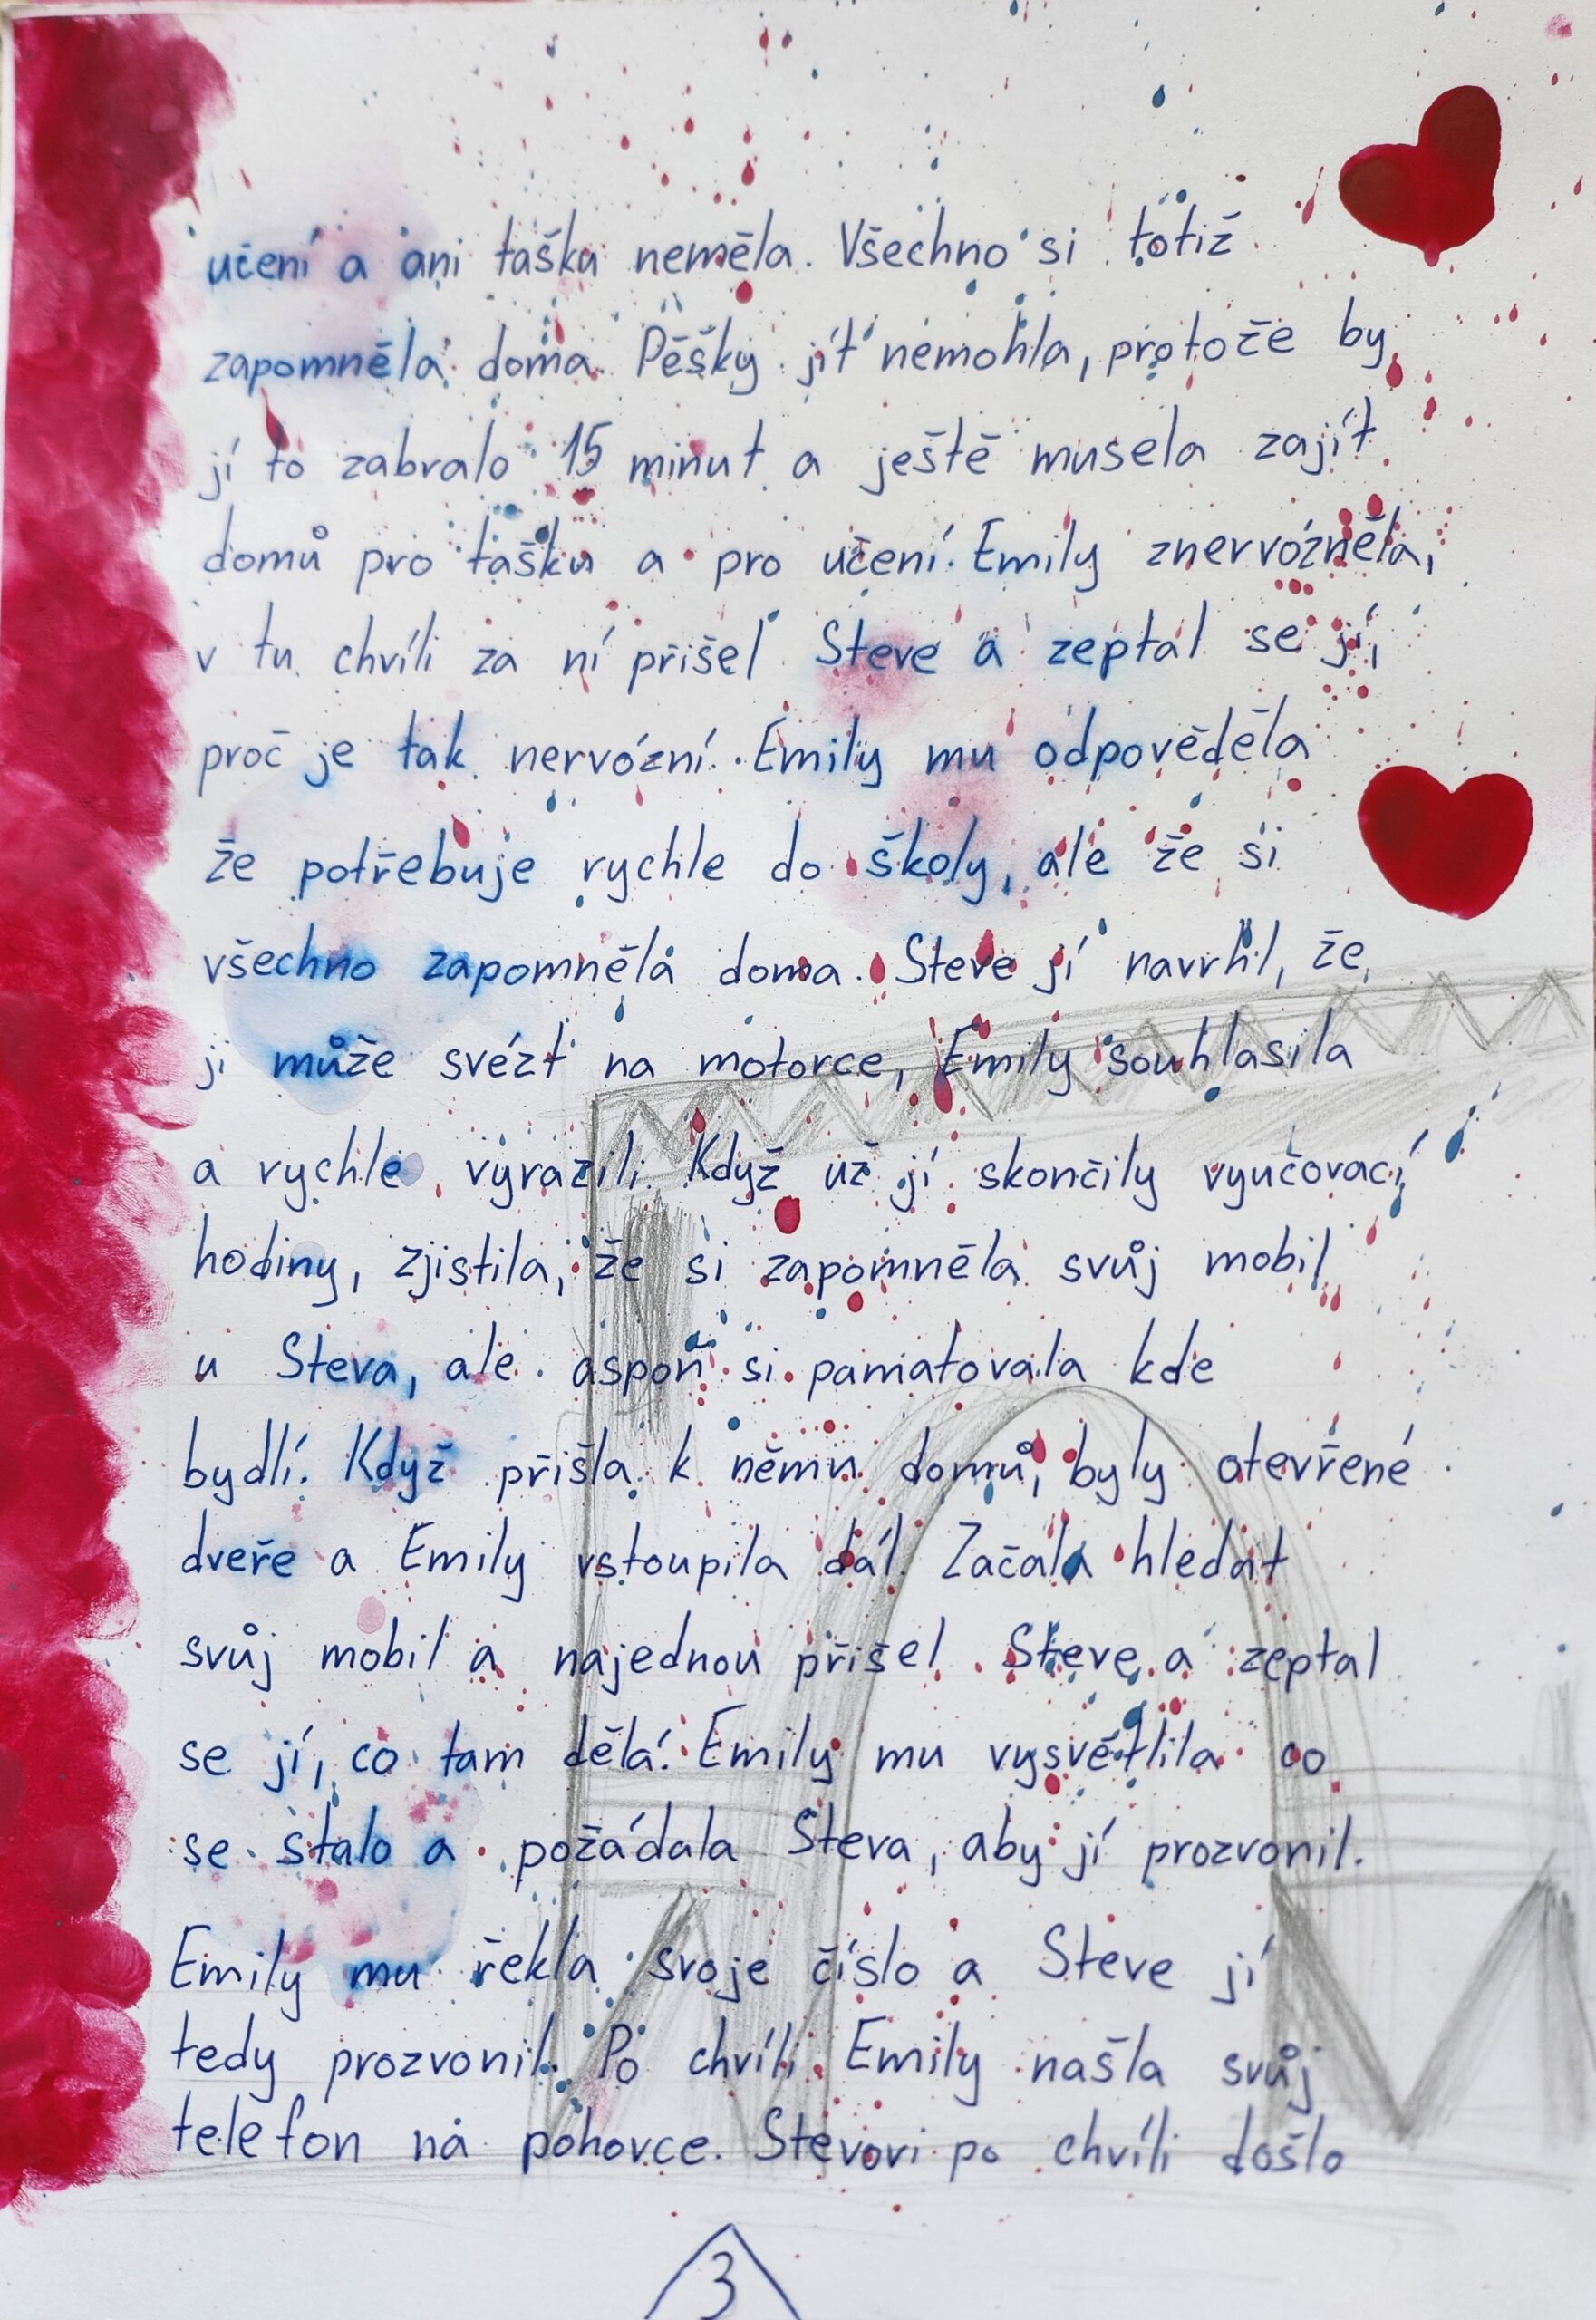 učení a ani tašku neměla. Všechno si totiž
zapomněla doma. Pěšky jít nemohla, protože by
jí to zabralo 15 minut a ještě musela zajít
domů pro tašku a pro učení. Emily znervózněla,
v tu chvíli za ní přišel Steve a zeptal se jí,
proč je tak nervózní. Emily mu odpověděla
že potřebuje rychle do školy, ale že si
všechno zapomněla doma. Steve jí navrhl, že
ji může svézt na motorce, Emily souhlasila
a rychle vyrazili. Když už jí skončily vyučovací
hodiny, zjistila, že si zapomněla svůj mobil
u Steva, ale aspoň si pamatovala kde
bydlí. Když přišla k němu domů, byly otevřené
dveře a Emily vstoupila dál. Začala hledat
svůj mobil a najednou přišel Steve a zeptal
se jí, co tam dělá. Emily mu vysvětlila co
se stalo a požádala Steva, aby jí prozvonil.
Emily mu řekla svoje číslo a Steve jí
tedy prozvonil. Po chvíli Emily našla svůj
telefon na pohovce. Stevovi po chvíli došlo
3